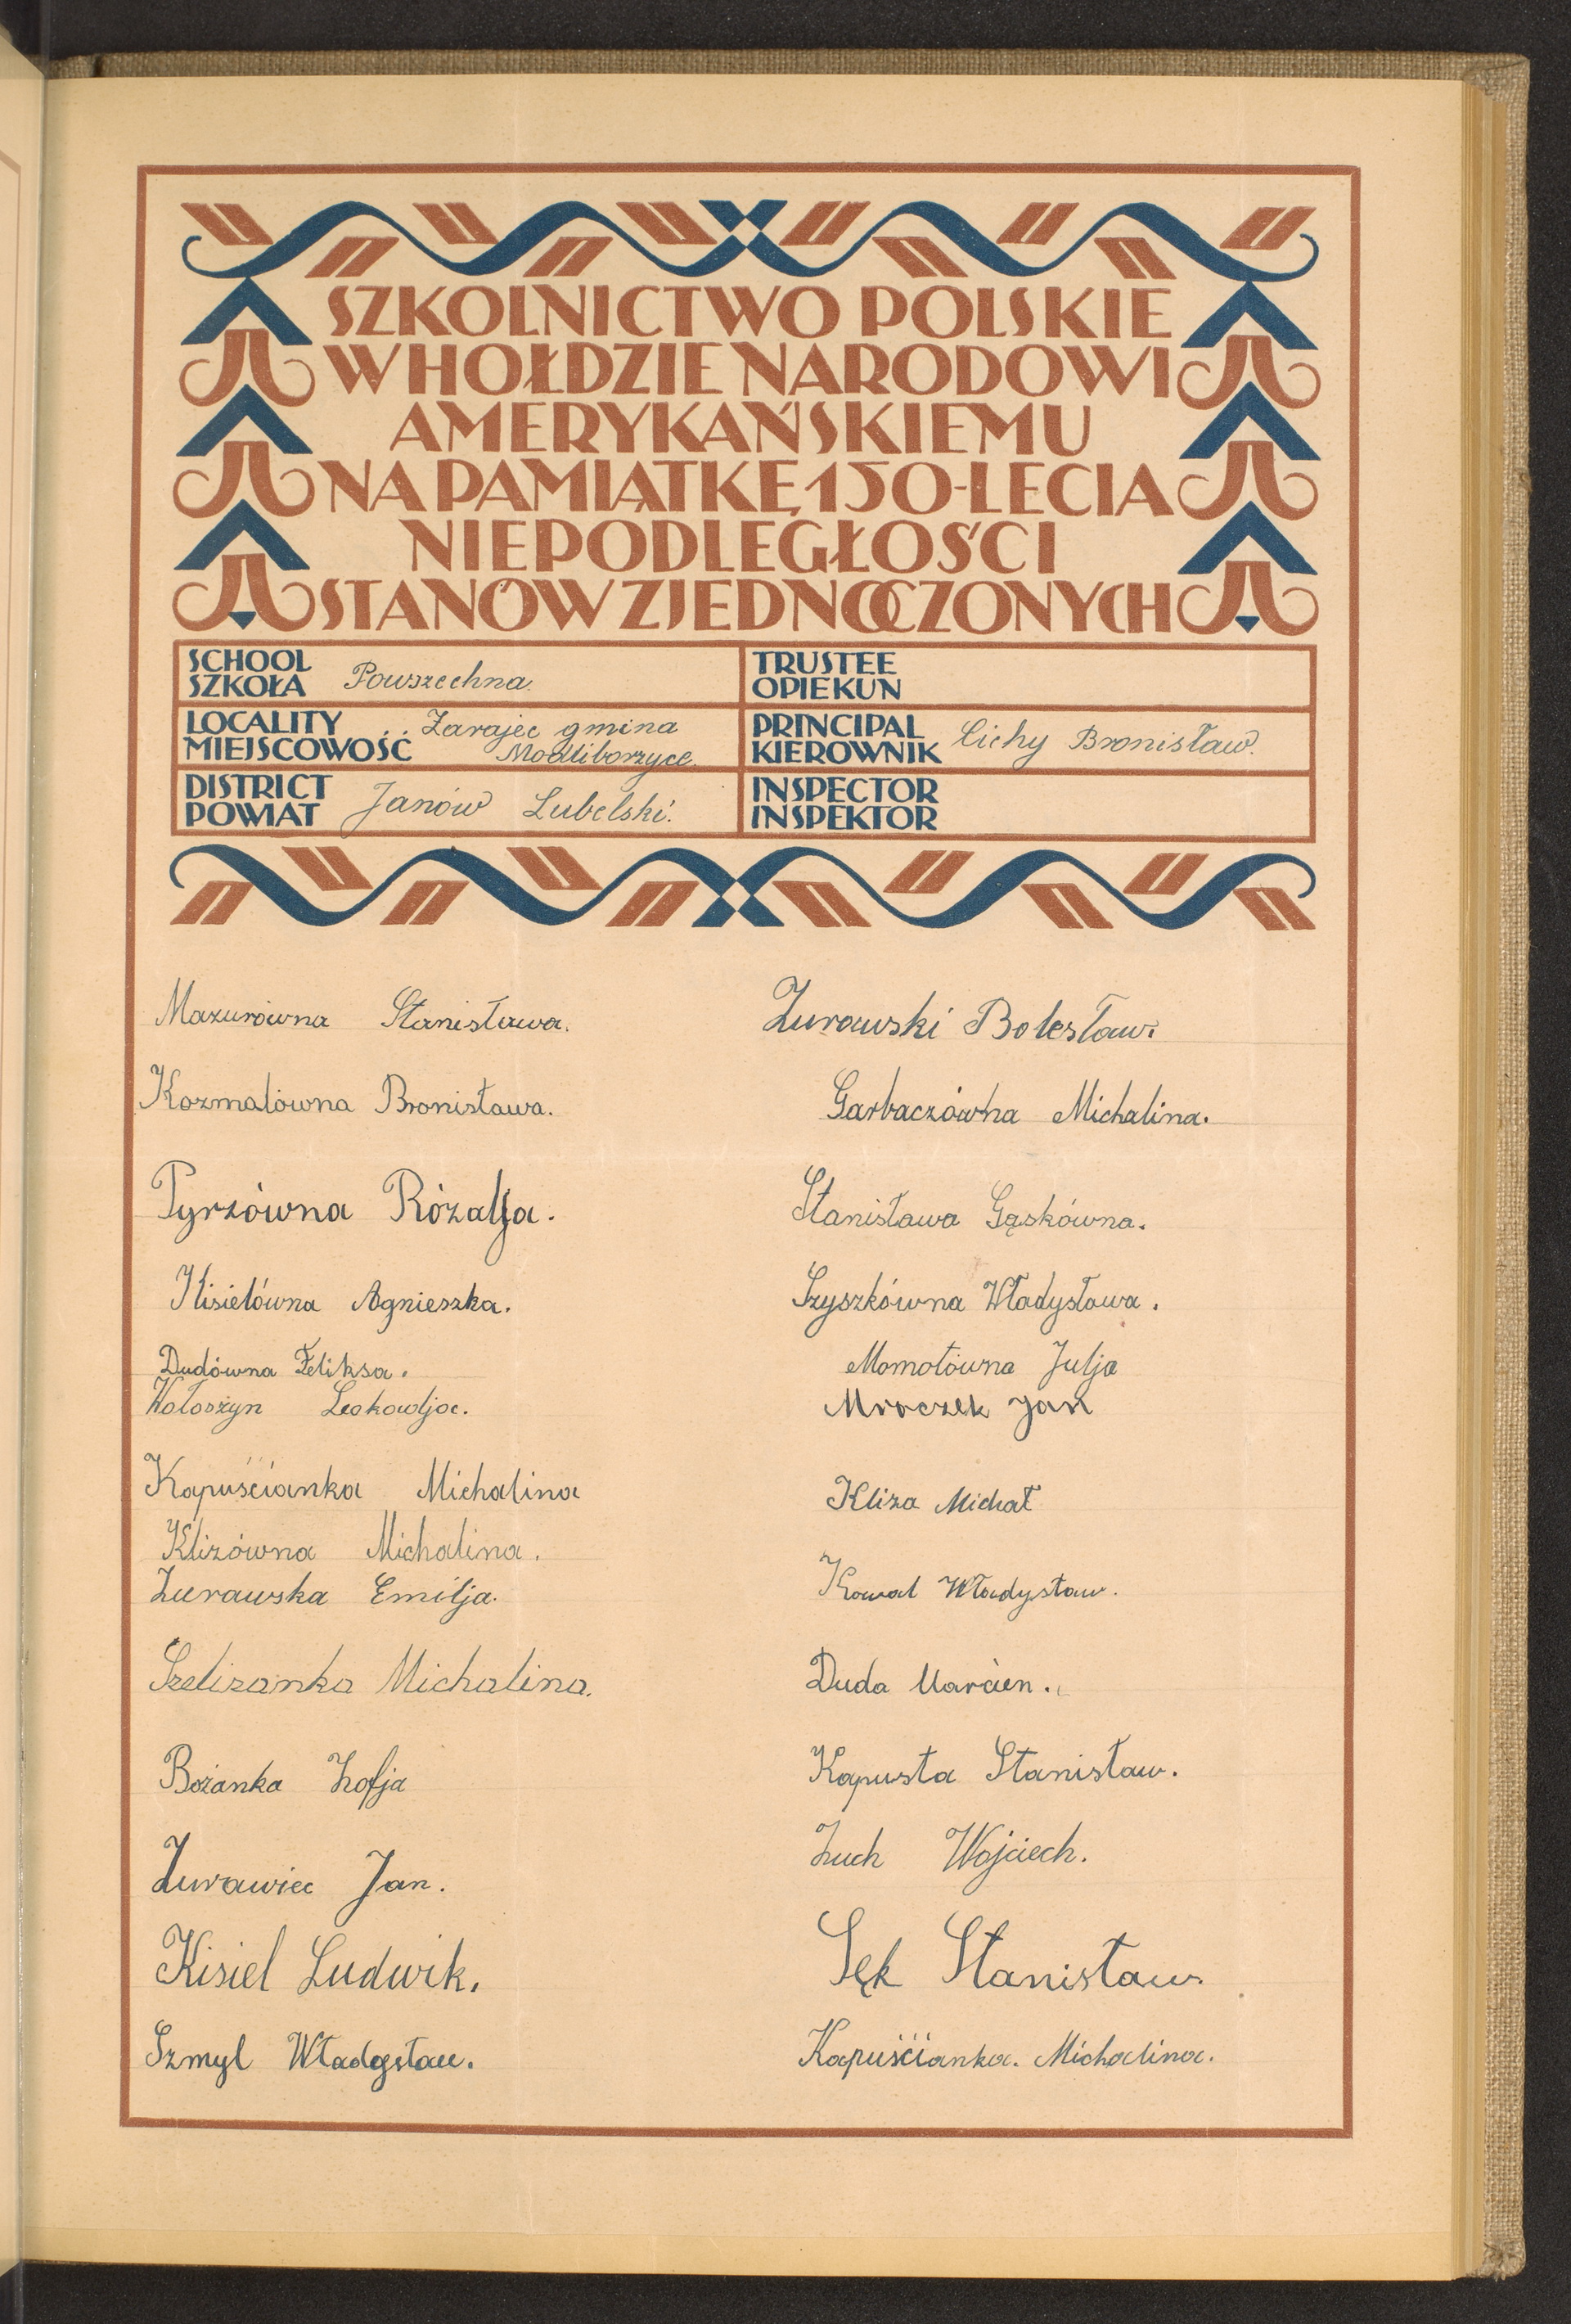 SZKOLNICTWO POLSKIE
W HOŁDZIE NARODOWI
AMERYKAŃSKIEMU
NA PAMIĄTKĘ 150-LECIA
NIEPODLEGŁOŚCI
STANÓW ZJEDNOCZONYCH
SCHOOL
SZKOŁA Powszechna.
TRUSTEE
OPIEKUN
LOCALITY
MIEJSCOWOŚĆ Zarajec gmina
Modliborzyce.
PRINCIPAL
KIEROWNIK Cichy Bronisław.
DISTRICT
POWIAT Janów Lubelski.
INSPECTOR
INSPEKTOR
Mazurówna Stanisława.
Kozmalówna Bronisława.
Pyrzówna Rózalja.
Kisielówna Agnieszka.
Dudówna Feliksa.
Wołoszyn Leokadja.
Kapuścianka Michalina
Klizówna Michalina.
Żurawska Emilja.
Szelizanka Michalina.
Bożanka Zofja
Żurawiec Jan.
Kisiel Ludwik.
Szmyl Władysław.
Żurawski Bolesław.
Garbaczówna Michalina.
Stanisława Gąskówna.
Szyszkówna Władysława.
Momotówna Julja
Mroczek Jan
Kliza Michał
Kowal Władysław.
Duda Marcien.
Kapusta Stanisław.
Zuch Wojciech.
Sęk Stanisław.
Kapuścianka. Michalina.